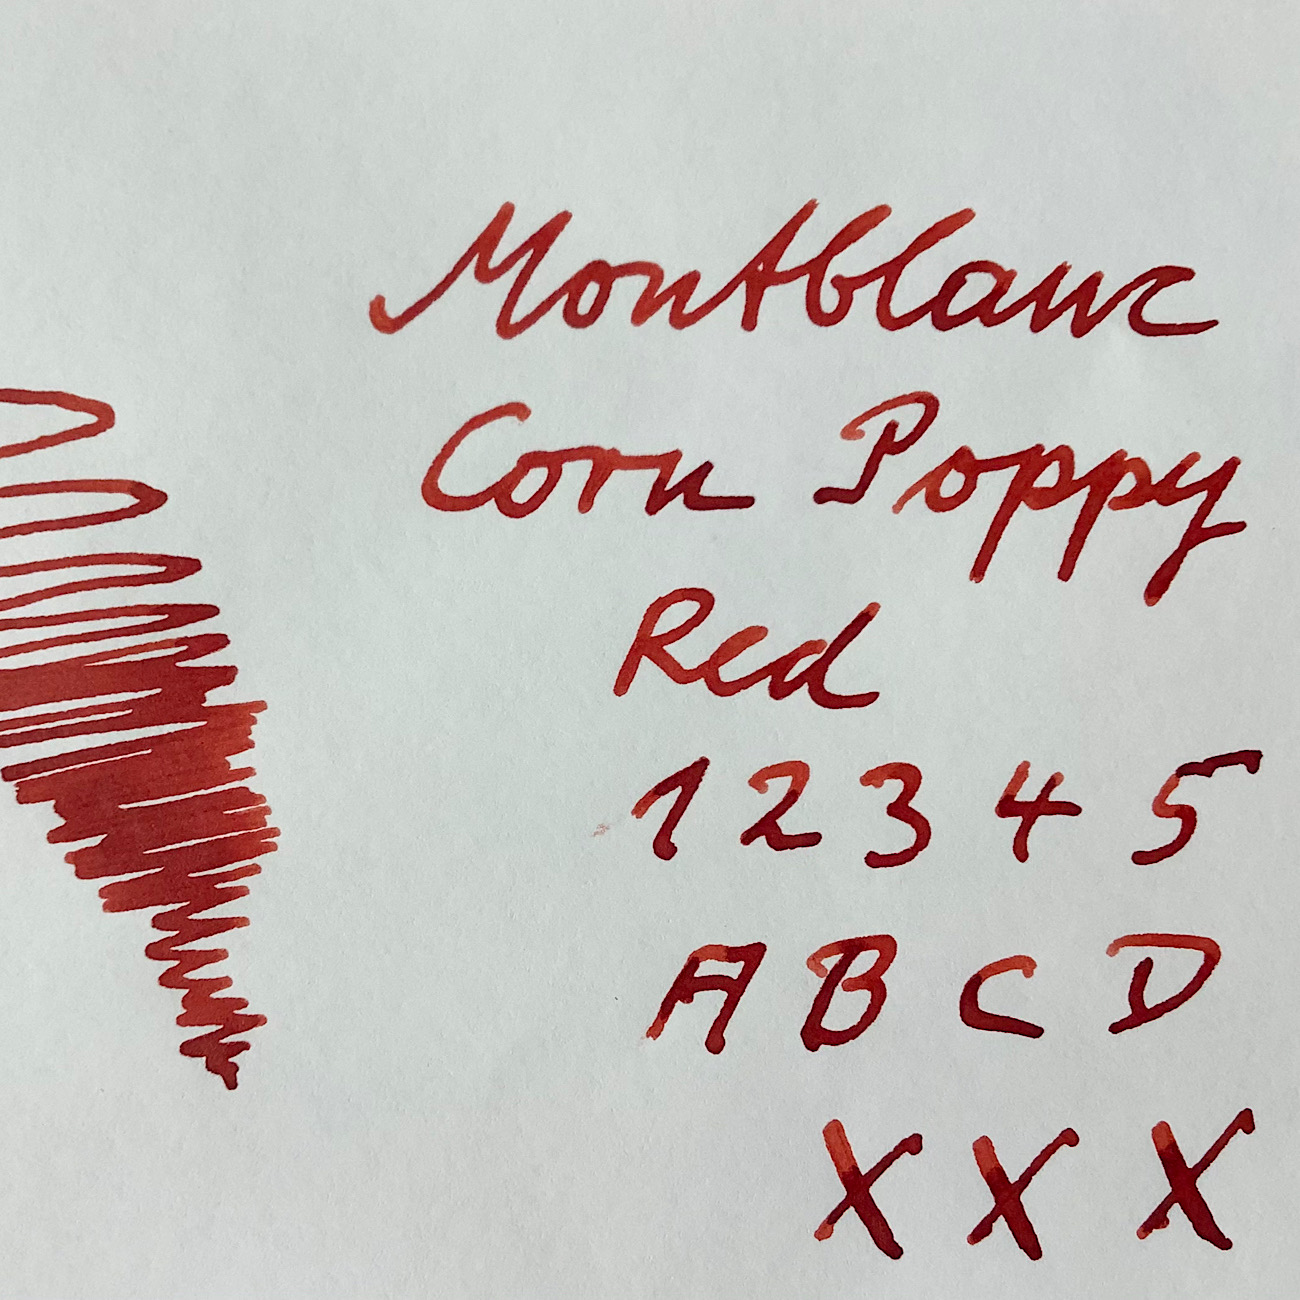 Montblanc
Corn Poppy
Red
1 2 3 4 5
A B C D
X X X